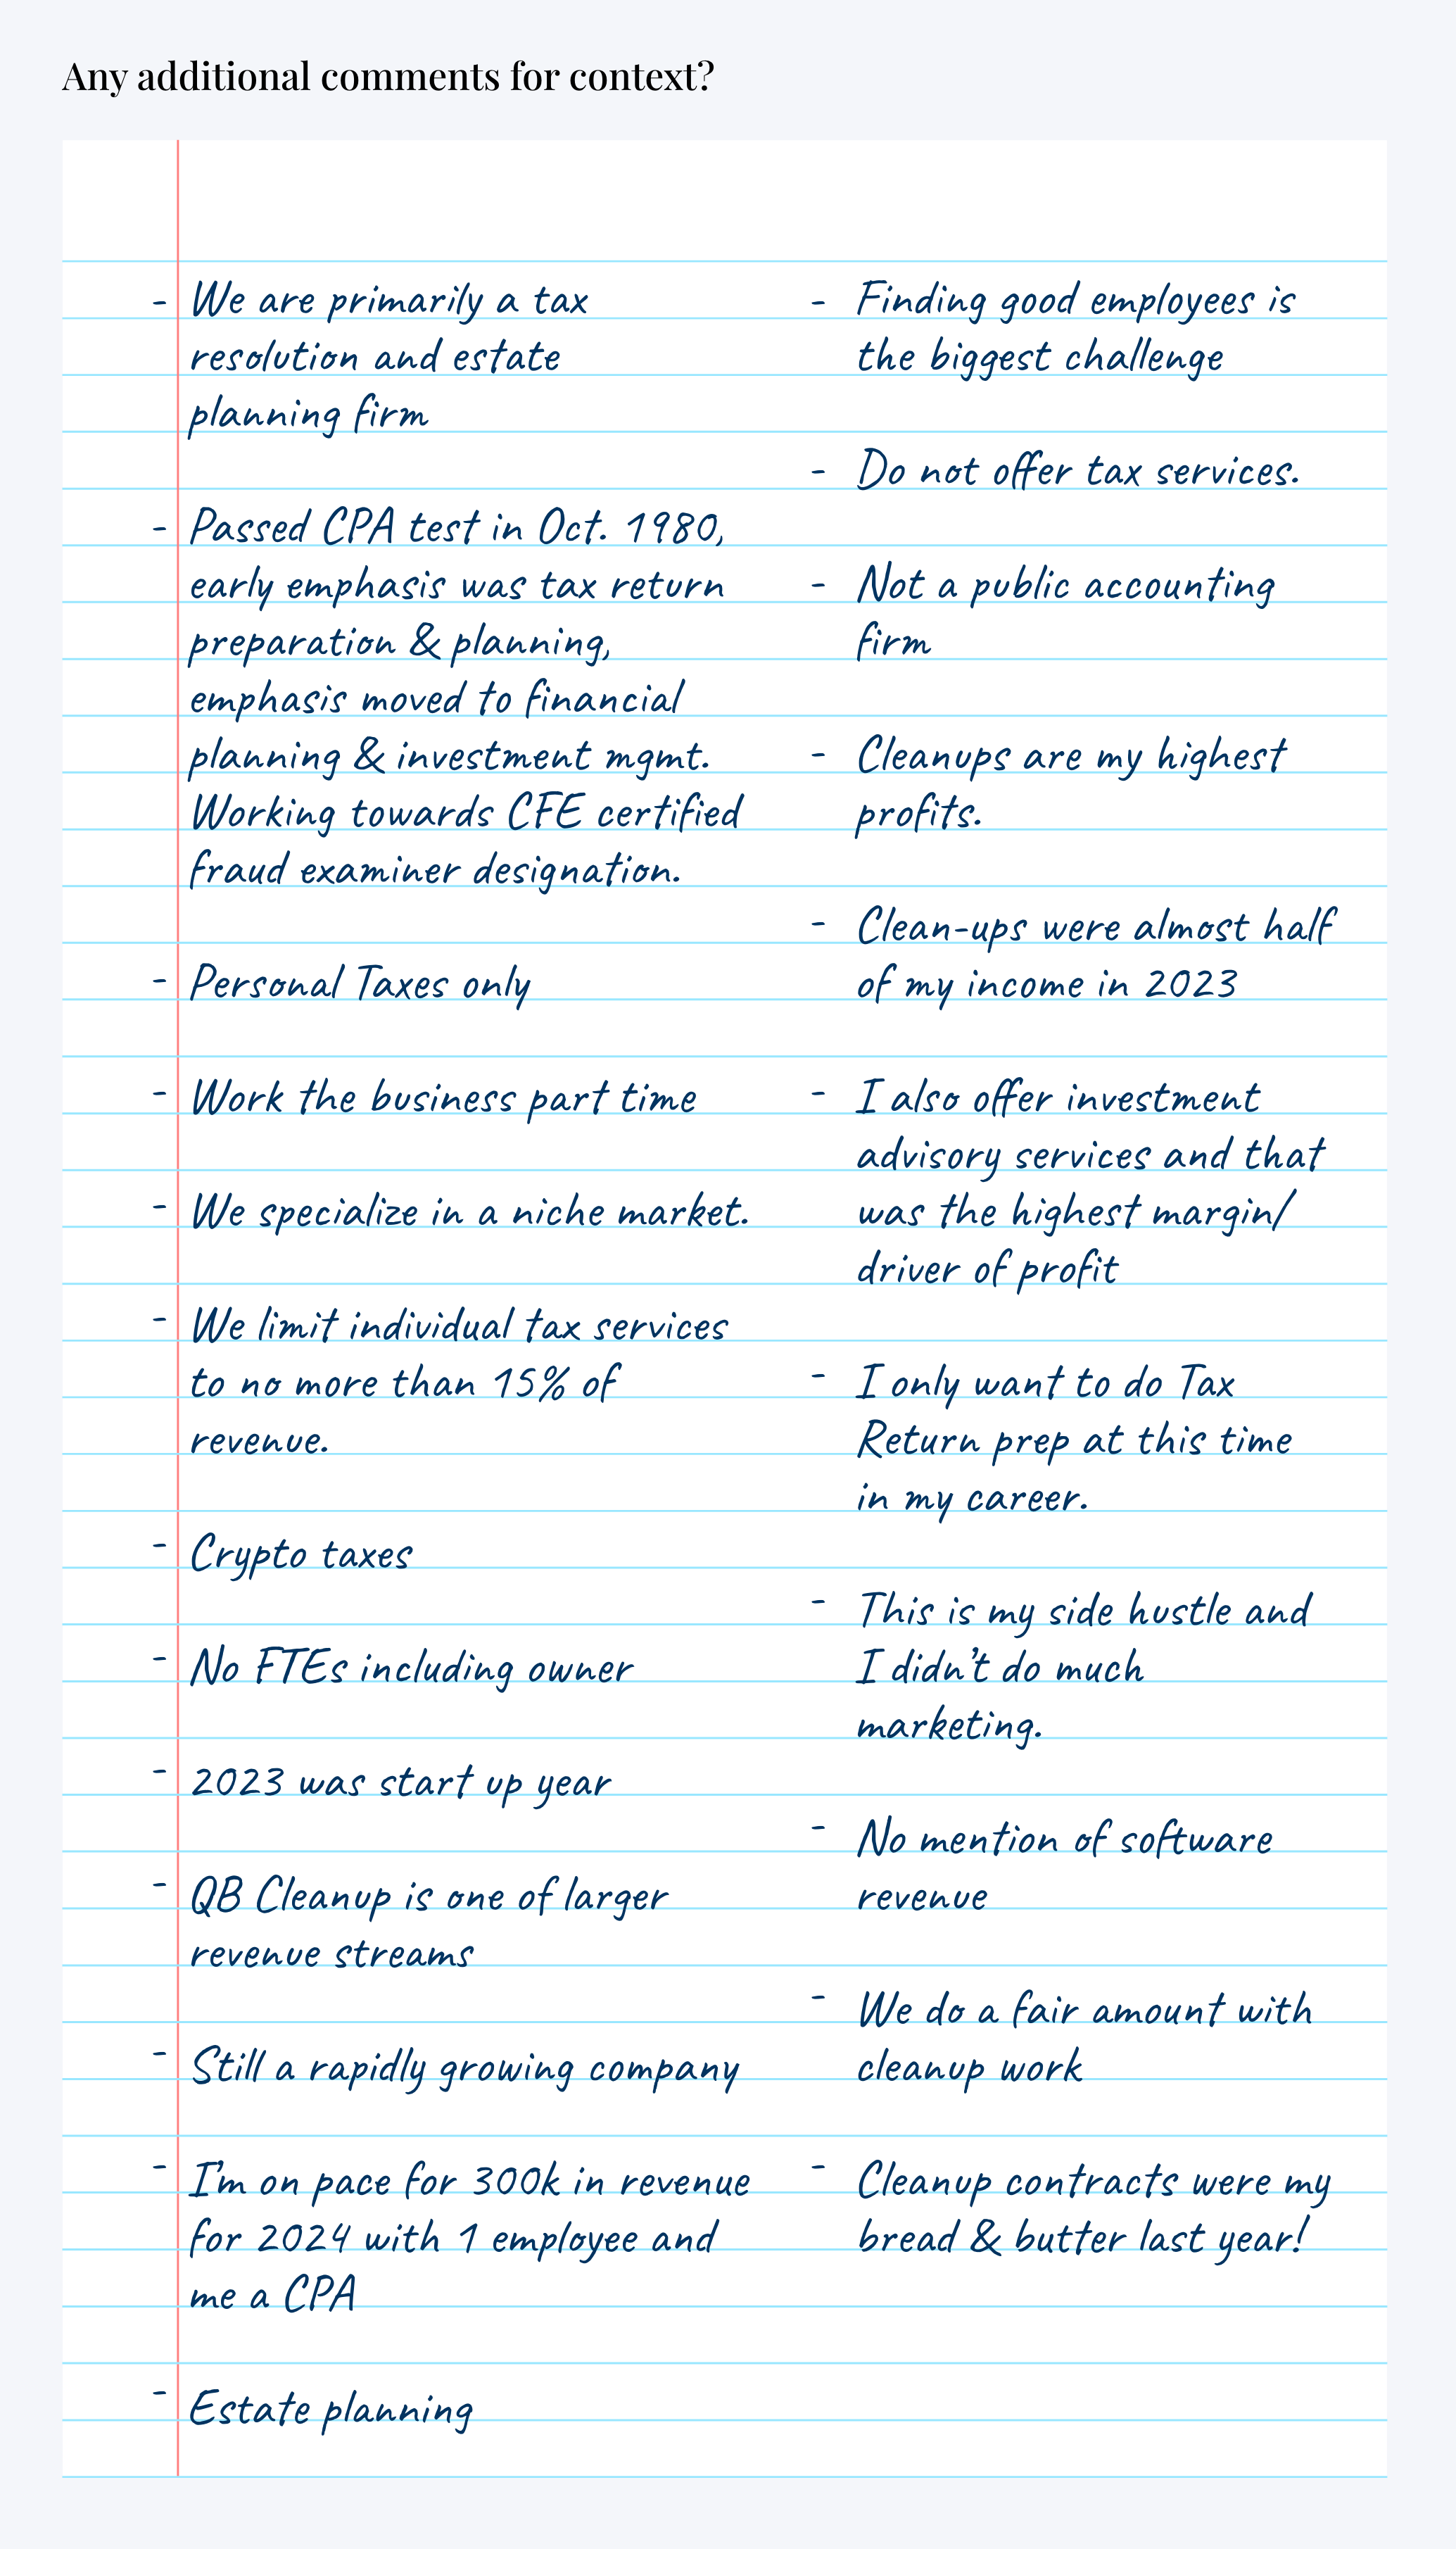 Any additional comments for context?
- We are primarily a tax
resolution and estate
planning firm
- Passed CPA test in Oct. 1980,
early emphasis was tax return
preparation & planning,
emphasis moved to financial
planning & investment mgmt.
Working towards CFE certified
fraud examiner designation.
- Personal Taxes only
- Work the business part time
- We specialize in a niche market.
- We limit individual tax services
to no more than 15% of
revenue.
- Crypto taxes
- No FTEs including owner
- 2023 was start up year
- QB Cleanup is one of larger
revenue streams
- Still a rapidly growing company
- I'm on pace for 300k in revenue
for 2024 with 1 employee and
me a CPA
- Estate planning
- Finding good employees is
the biggest challenge
- Do not offer tax services.
- Not a public accounting
firm
- Cleanups are my highest
profits.
- Clean-ups were almost half
of my income in 2023
- I also offer investment
advisory services and that
was the highest margin/
driver of profit
- I only want to do Tax
Return prep at this time
in my career.
- This is my side hustle and
I didn't do much
marketing.
- No mention of software
revenue
- We do a fair amount with
cleanup work
- Cleanup contracts were my
bread & butter last year!